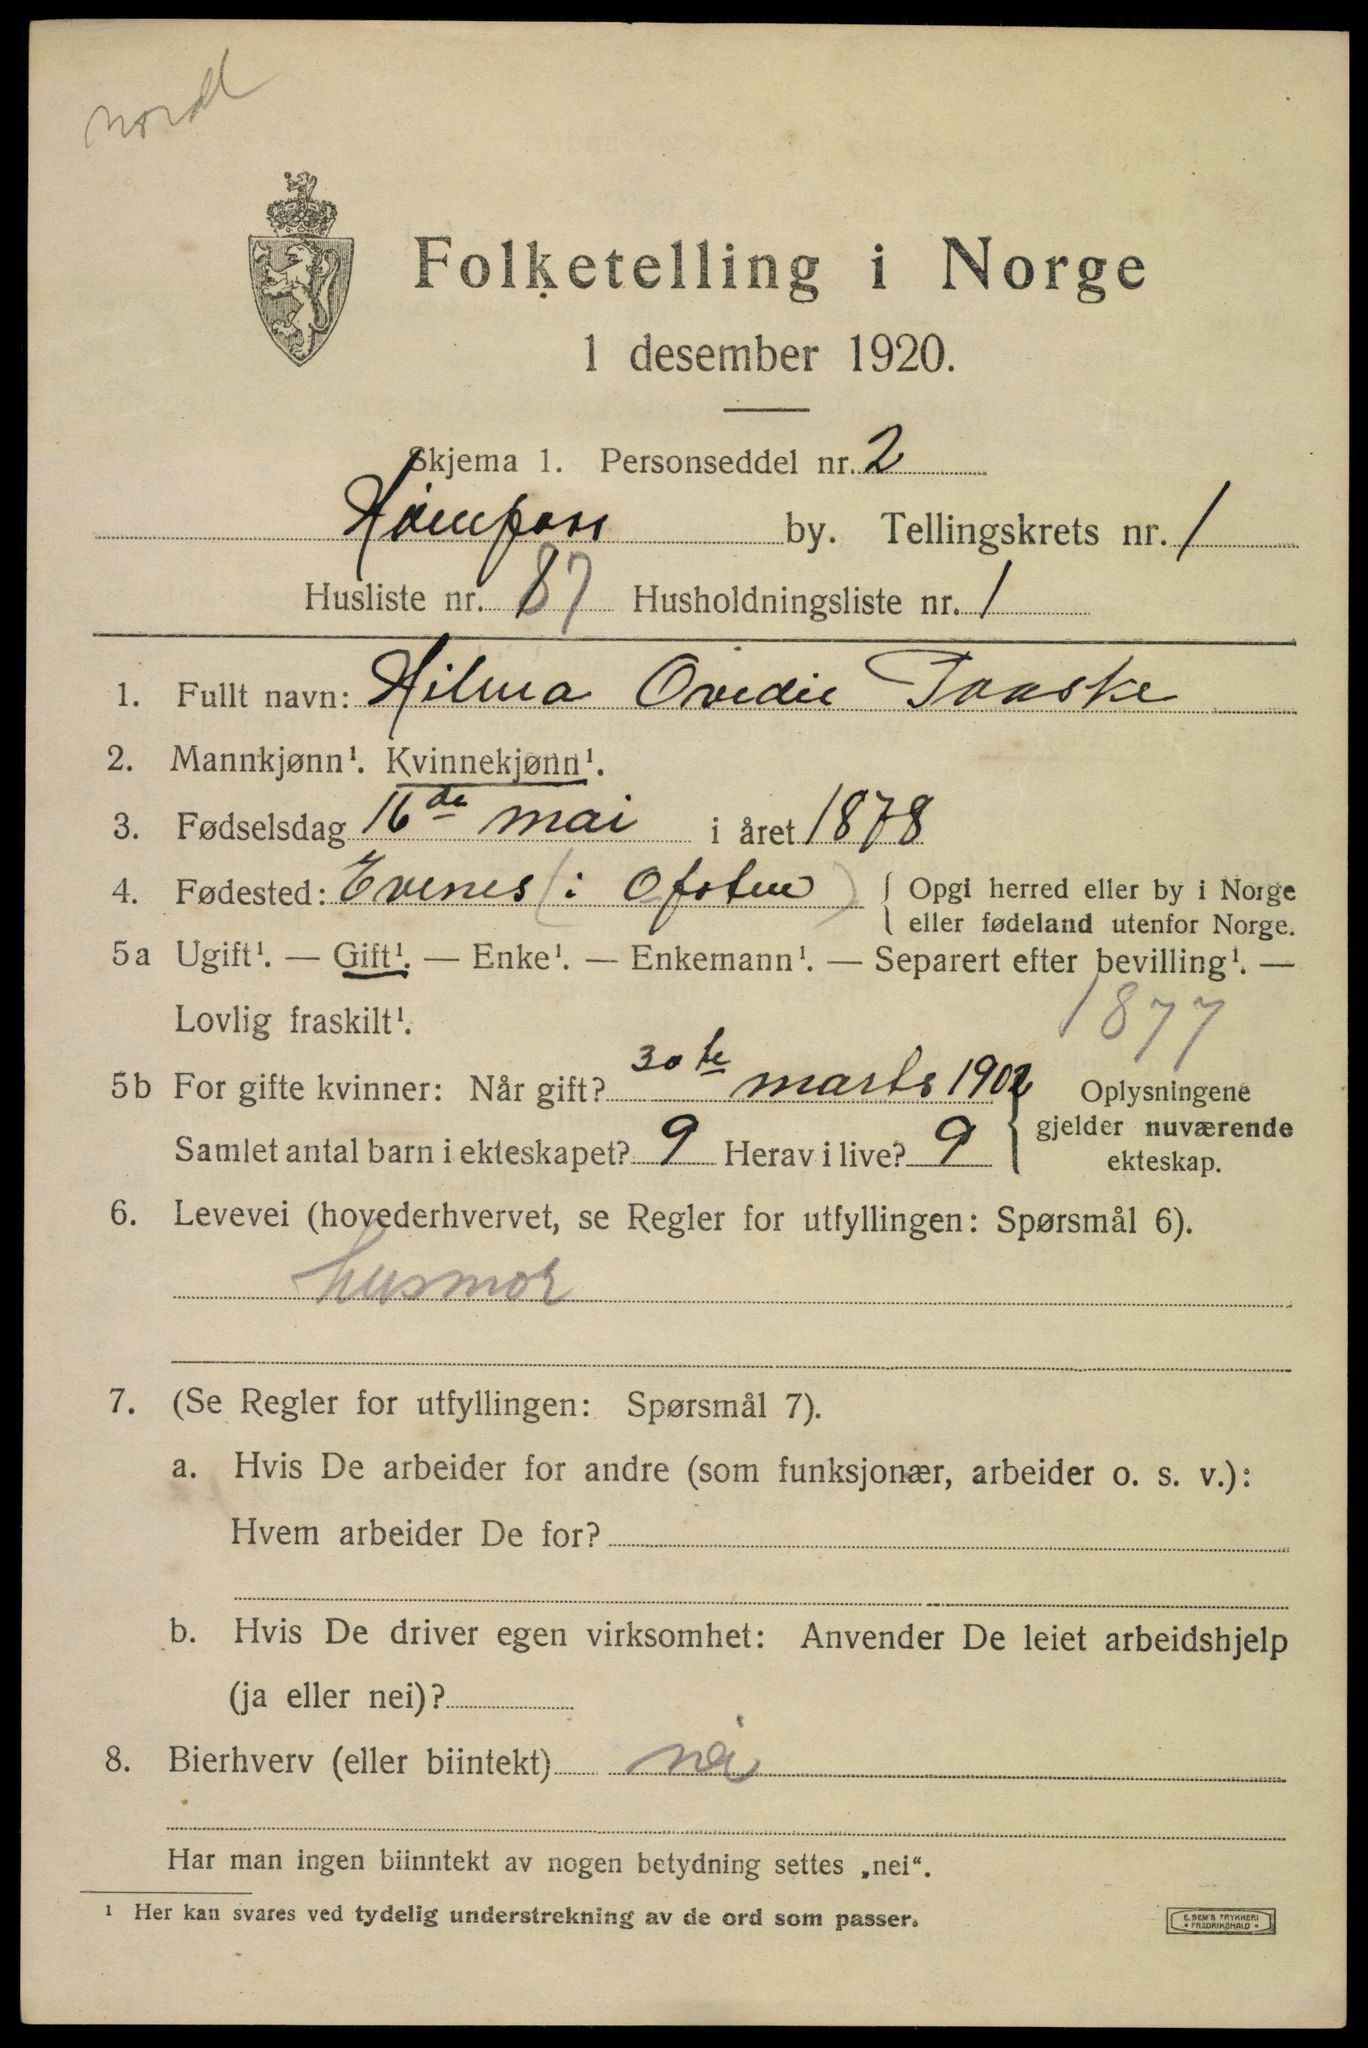 nordl
Folketelling i Norge
1 desember 1920.
Skjema 1. Personseddel nr. 2
by. Tellingskrets nr. 1
Husliste nr. 87 Husholdningsliste nr. 1
1. Fullt navn: Hilma Ovedie Paaske
2. Mannkjønn¹. Kvinnekjønn¹.
3. Fødselsdag 16de mai i året 1878
4. Fødested: Evenes (i Ofoten) { Opgi herred eller by i Norge
eller fødeland utenfor Norge.
5a Ugift¹. — Gift¹. — Enke¹. — Enkemann¹. — Separert efter bevilling¹. —
Lovlig fraskilt¹. 1877
5b For gifte kvinner: Når gift? 30te marts 1902 { Oplysningene
gjelder nuværende
Samlet antal barn i ekteskapet? 9 Herav i live? 9 ekteskap.
6. Levevei (hovederhvervet, se Regler for utfyllingen: Spørsmål 6).
husmor
7. (Se Regler for utfyllingen: Spørsmål 7).
a. Hvis De arbeider for andre (som funksjonær, arbeider o. s. v.):
Hvem arbeider De for?
b. Hvis De driver egen virksomhet: Anvender De leiet arbeidshjelp
(ja eller nei)?
8. Bierhverv (eller biintekt) nei
Har man ingen biinntekt av nogen betydning settes „nei“.
¹ Her kan svares ved tydelig understrekning av de ord som passer.
E. SEM'S TRYKKERI
FREDRIKSHALD